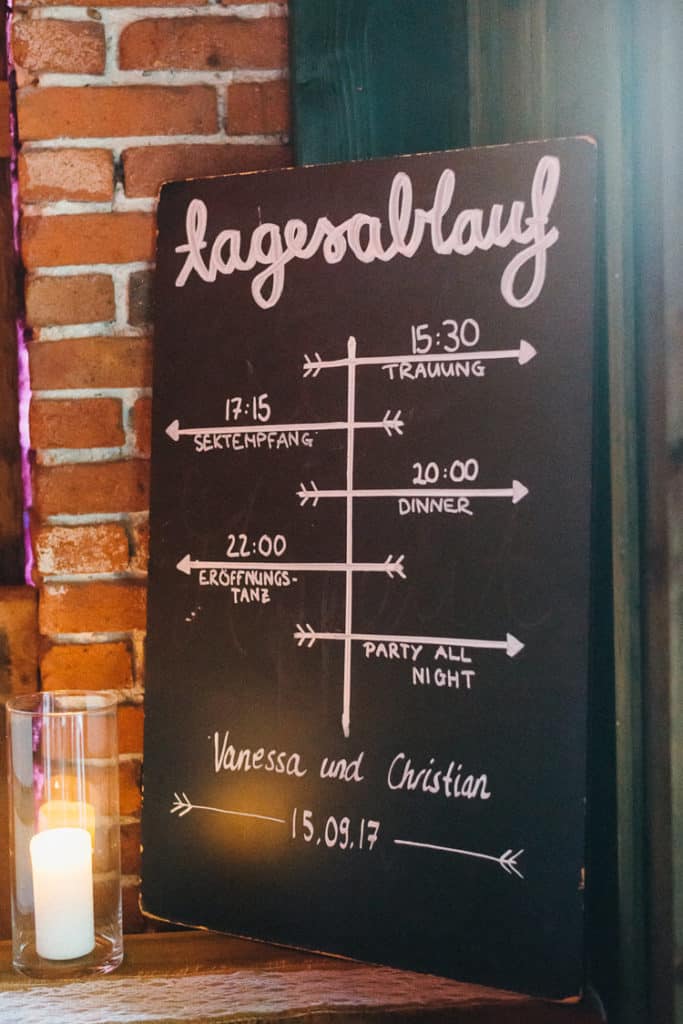 tagesablauf
15:30
TRAUUNG
17:15
SEKTEMPFANG
20:00
DINNER
22:00
ERÖFFNUNGS-
TANZ
PARTY ALL
NIGHT
Vanessa und Christian
15.09.17